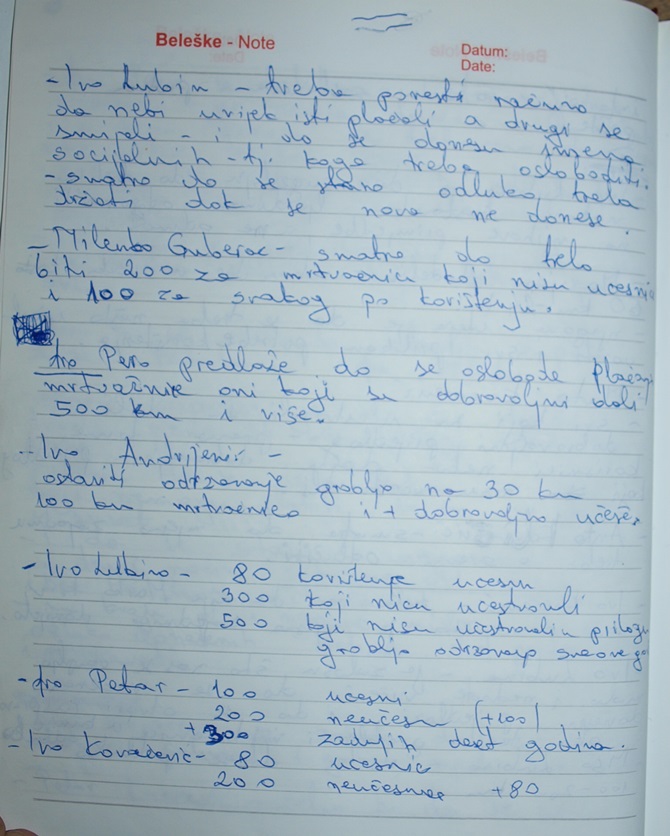 Beleške - Note
Datum:
Date:
- Ivo Lubin - treba povesti računa
da nebi uvijek isti plaćali a drugi se
smijali - i da se donesu imena
socijalnih - tj. koga treba osloboditi.
- smatra da se stara odluka treba
držati dok se nova ne donese.
- Milenko Guberac - smatra da treba
biti 200 za mrtvačnicu koji nisu ucesnici
i 100 za svakog po korištenju.
fra Pero predlaže da se oslobode plaćanja
mrtvačnice oni koji su dobrovoljni dali
500 km i više.
- Ivo Andrijević -
ostaviti odrzavanje groblja na 30 km
100 km mrtvacnica i + dobrovoljno učešće
- Ivo Lubina - 80 korištenje ucesn
300 koji nisu ucestvovali
500 koji nisu učestvovali u prilogu
groblja odrzavanja
- fra Petar - 100 ucesni
200 neučesn (+100)
+ 300 zadnjih deset godina.
- Ivo Kovačević - 80 ucesnic
200 neučesnic +80